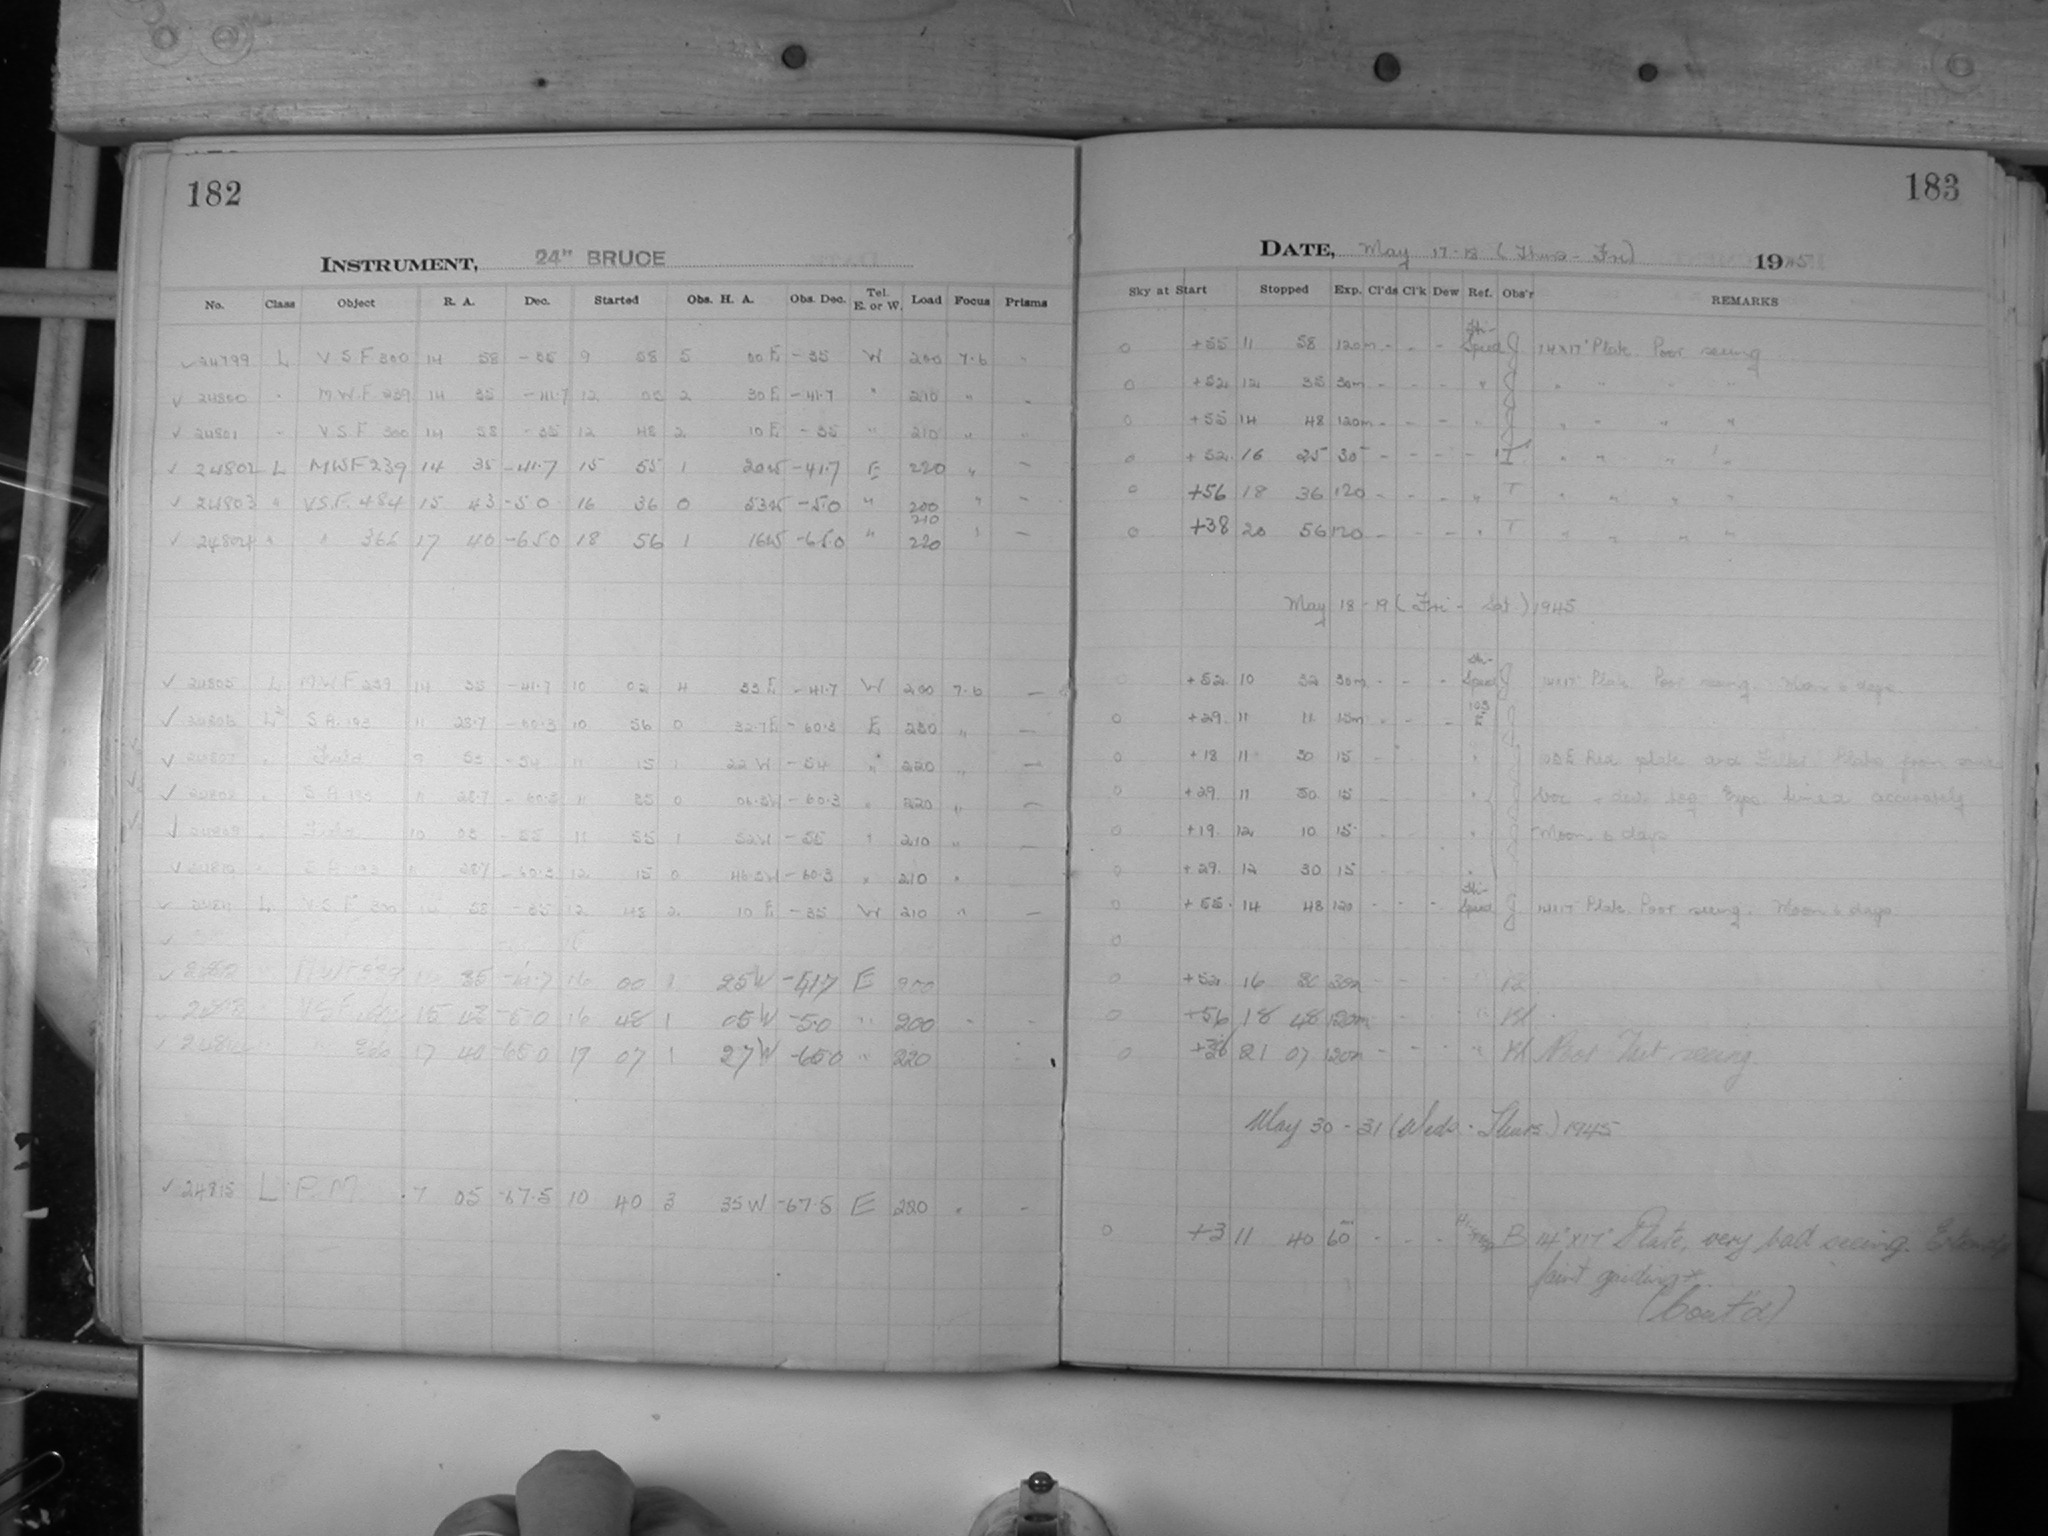 182
INSTRUMENT, 24" BRUCE
No. Class Object R. A. Dec. Started Obs. H. A. Obs. Dec. Tel. E. or W. Load Focus Prisms
✓ 24799 L V.S.F 300 14 58 -35 9 58 5 00 E -35 W 200 7.6 "
✓ 24800 " M.W.F. 239 14 35 -41.7 12 05 2 30 E -41.7 " 210 " "
✓ 24801 " V.S.F. 300 14 58 -35 12 48 2 10 E -35 " 210 " "
✓ 24802 L MWF 239 14 35 -41.7 15 55 1 20W -41.7 E 220 " -
✓ 24803 " V.S.F. 484 15 43 -50 16 36 0 53W -50 " 200 210 " -
✓ 24804 " " 366 17 40 -65.0 18 56 1 16W -65.0 " 220 " -
✓ 24805 L M.W.F 239 14 35 -41.7 10 02 4 33 E -41.7 W 200 7.6 -
✓ 24806 S.A. 193 11 28.7 -60.3 10 56 0 32.7E -60.3 E 230 " -
✓ 24807 " Field 9 53 -54 11 15 1 22 W -54 " 220 " -
✓ 24808 " S.A. 193 11 28.7 -60.3 11 35 0 -60.3 " 220 " -
✓ 24809 " Field 10 03 -55 11 55 1 52W -55 " 210 " -
✓ 24810 " S.A. 193 11 28.7 -60.3 12 15 0 46.3W -60.3 " 210 "
✓ 24811 L V.S.F. 300 14 58 -35 12 48 2 10 E -35 W 210 " -
✓
✓ MWF 239 35 -41.7 16 00 1 25W -41.7 E 200
V.S.F. 15 43 -50 16 48 1 05W -50 " 200 - -
17 40 -650 19 07 1 27W -650 " 220
✓ 24815 L P M 7 05 -67.5 10 40 3 35W -67.5 E 220 " -
183
DATE, May 17-18 (Thurs - Fri) 1945
Sky at Start Stopped Exp. Cl'ds Cl'k Dew Ref. Obs'r REMARKS
0 +55 11 58 120m - - - Hi-Speed J 14x17" Plate. Poor seeing
0 +52 12 35 30m - - - " J " " " "
0 +55 14 48 120m - - - " J " " " "
0 +52 16 25 30 - - - " " " "
0 +56 18 36 120 - - - " T " " " "
0 +38 20 56 120 - - - " T " " " "
May 18-19 (Fri - Sat) 1945
+52 10 32 30m - - - Hi-Speed J 14x17" Plate. Poor seeing. Moon 6 days
0 +29 11 11 15m - - 103 E J
0 +18 11 30 15 - " J 103E Red plate and Filter. Plates from same
0 +29 11 50 15 - - " J box & dev. tog. Expo. timed accurately
0 +19 12 10 15 - - " J Moon 6 days
0 +29 12 30 15 - - "
0 +55 14 48 120 - - - Hi-Speed J 14x17 Plate. Poor seeing. Moon 6 days
0
0 +52 16 30 30m - -
0 +56 18 48 120m - -
0 21 07 120m - - - " seeing.
May 30-31 (Weds. - Thurs.) 1945
0 +3 11 40 60m - - - Hi-Speed B 14"x17" Plate, very bad seeing.
faint guiding *.
(Cont'd)